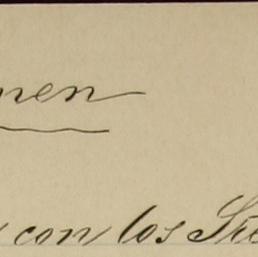 men
con los